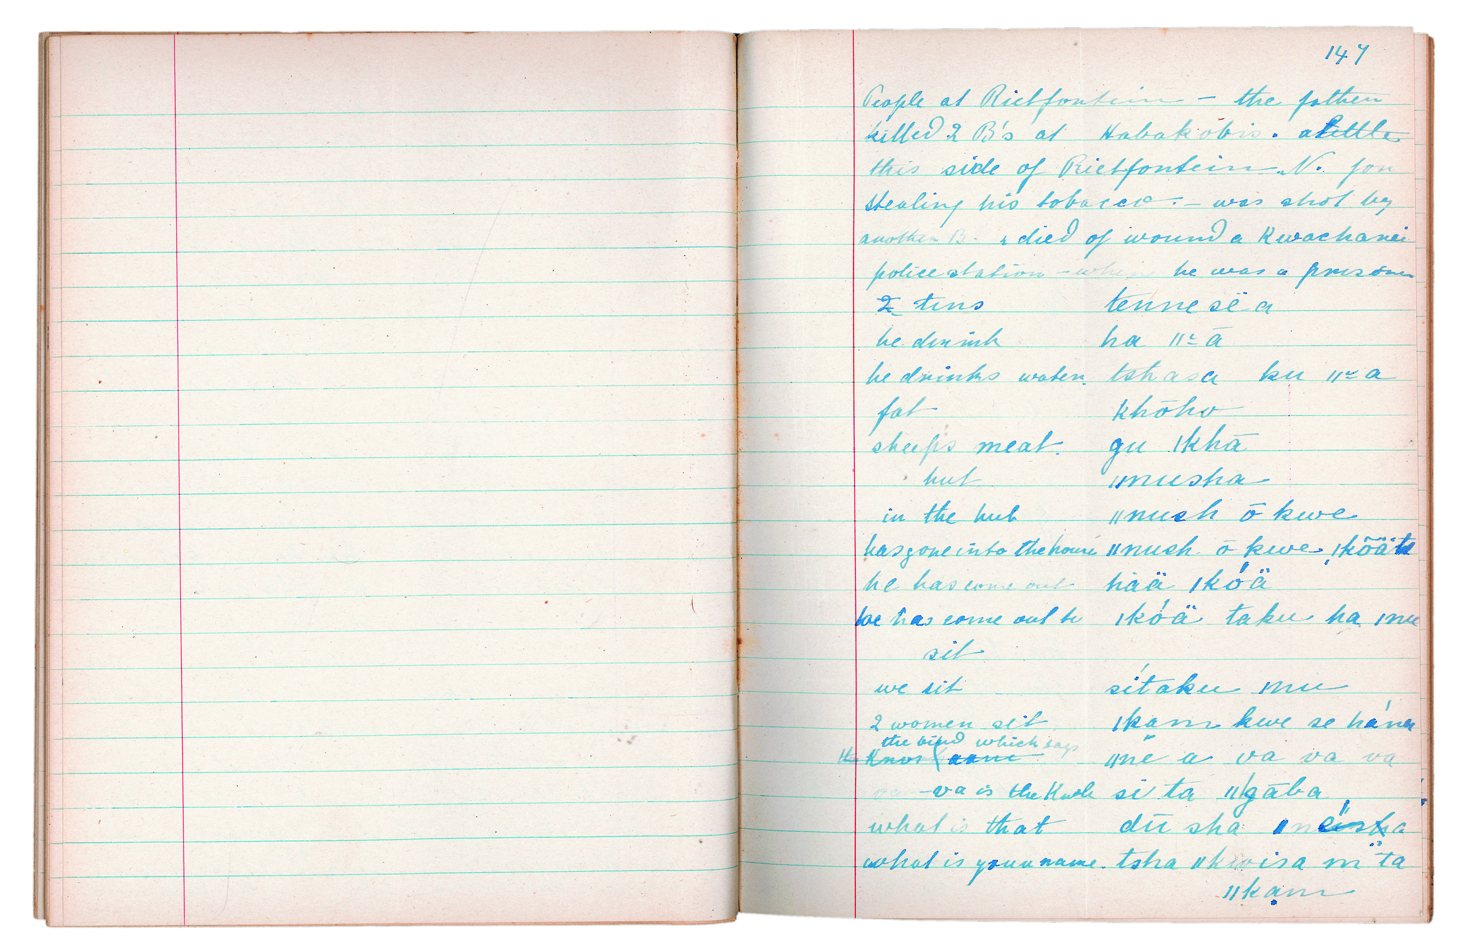 147
People at Rietfontein – the father
killed 2 B's at Habakobis. a little
this side of Rietfontein N. for
stealing his tobacco. – was shot by
another B. & died of wound a Kwachanei
police station – when he was a prisoner
2 tins tennesëa
he drink ha ǁ ā
he drinks water. tshasa ku ǁ a
fat khōho
sheep's meat. gu ǀkhā
hut ǁnusha
in the hut ǁnush ō kwe
has gone into the house ǁnush ō kwe ǀkõä
he has come out hää ǀkóä
he has come out to ǀkóä taku ha ǀnu
sit
we sit sítaku mu
2 women sit ǀkam kwe se hána
the bird which says
Knor ǁnë a va va va
– va is the Knor si ta ǁgāba
what is that dū sha
what is your name. tsha ǁkwisa m ta
ǁkam